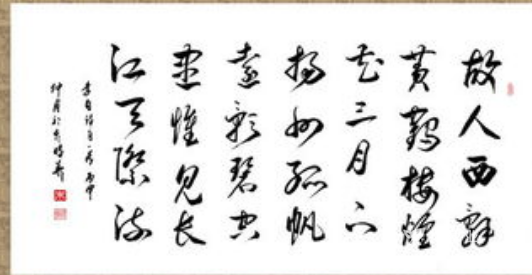 故人西辭
黄鶴樓煙
花三月下
揚州孤帆
遠影碧空
盡惟見長
江天際流
李白詩 一首 丙申